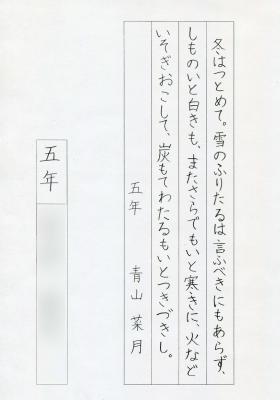 冬はつとめて。雪のふりたるは言ふべきにもあらず、
しものいと白きも、またさらでもいと寒きに、火など
いそぎおこして、炭もてわたるもいとつきづきし。
五年 青山菜月
五年